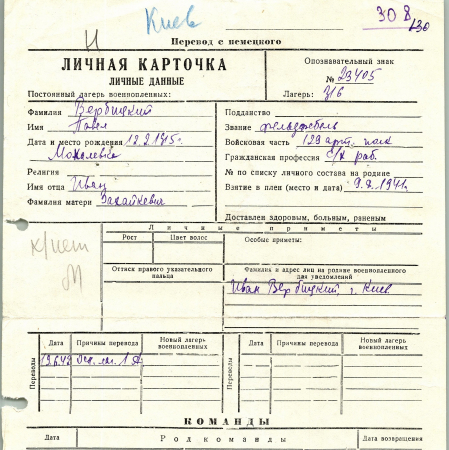 Киев
30 8
/30
Н
Перевод с немецкого
ЛИЧНАЯ КАРТОЧКА
ЛИЧНЫЕ ДАННЫЕ
Опознавательный знак
№ 23405
Постоянный лагерь военнопленных:
Лагерь: 316
Фамилия Вербицкий
Имя Павел
Дата и место рождения 12.2.1915г.
Религия
Имя отца Иван
Фамилия матери Закайкевич
Подданство
Звание фельдфебель
Войсковая часть 129 арт. полк
Гражданская профессия С/х раб.
№ по списку личного состава на родине
Взятие в плен (место и дата) 9.8.1941.
Доставлен здоровым, больным, раненым
Личные приметы
Рост
Цвет волос
Особые приметы:
Оттиск правого указательного
пальца
Фамилия и адрес лиц на родине военнопленного
для уведомлений
Иван Вербицкий, г. Киев
Переводы
Дата
Причины перевода
Новый лагерь
военнопленных
Переводы
Дата
Причины перевода
Новый лагерь
военнопленных
КОМАНДЫ
Дата
Род команды
Дата возвращения